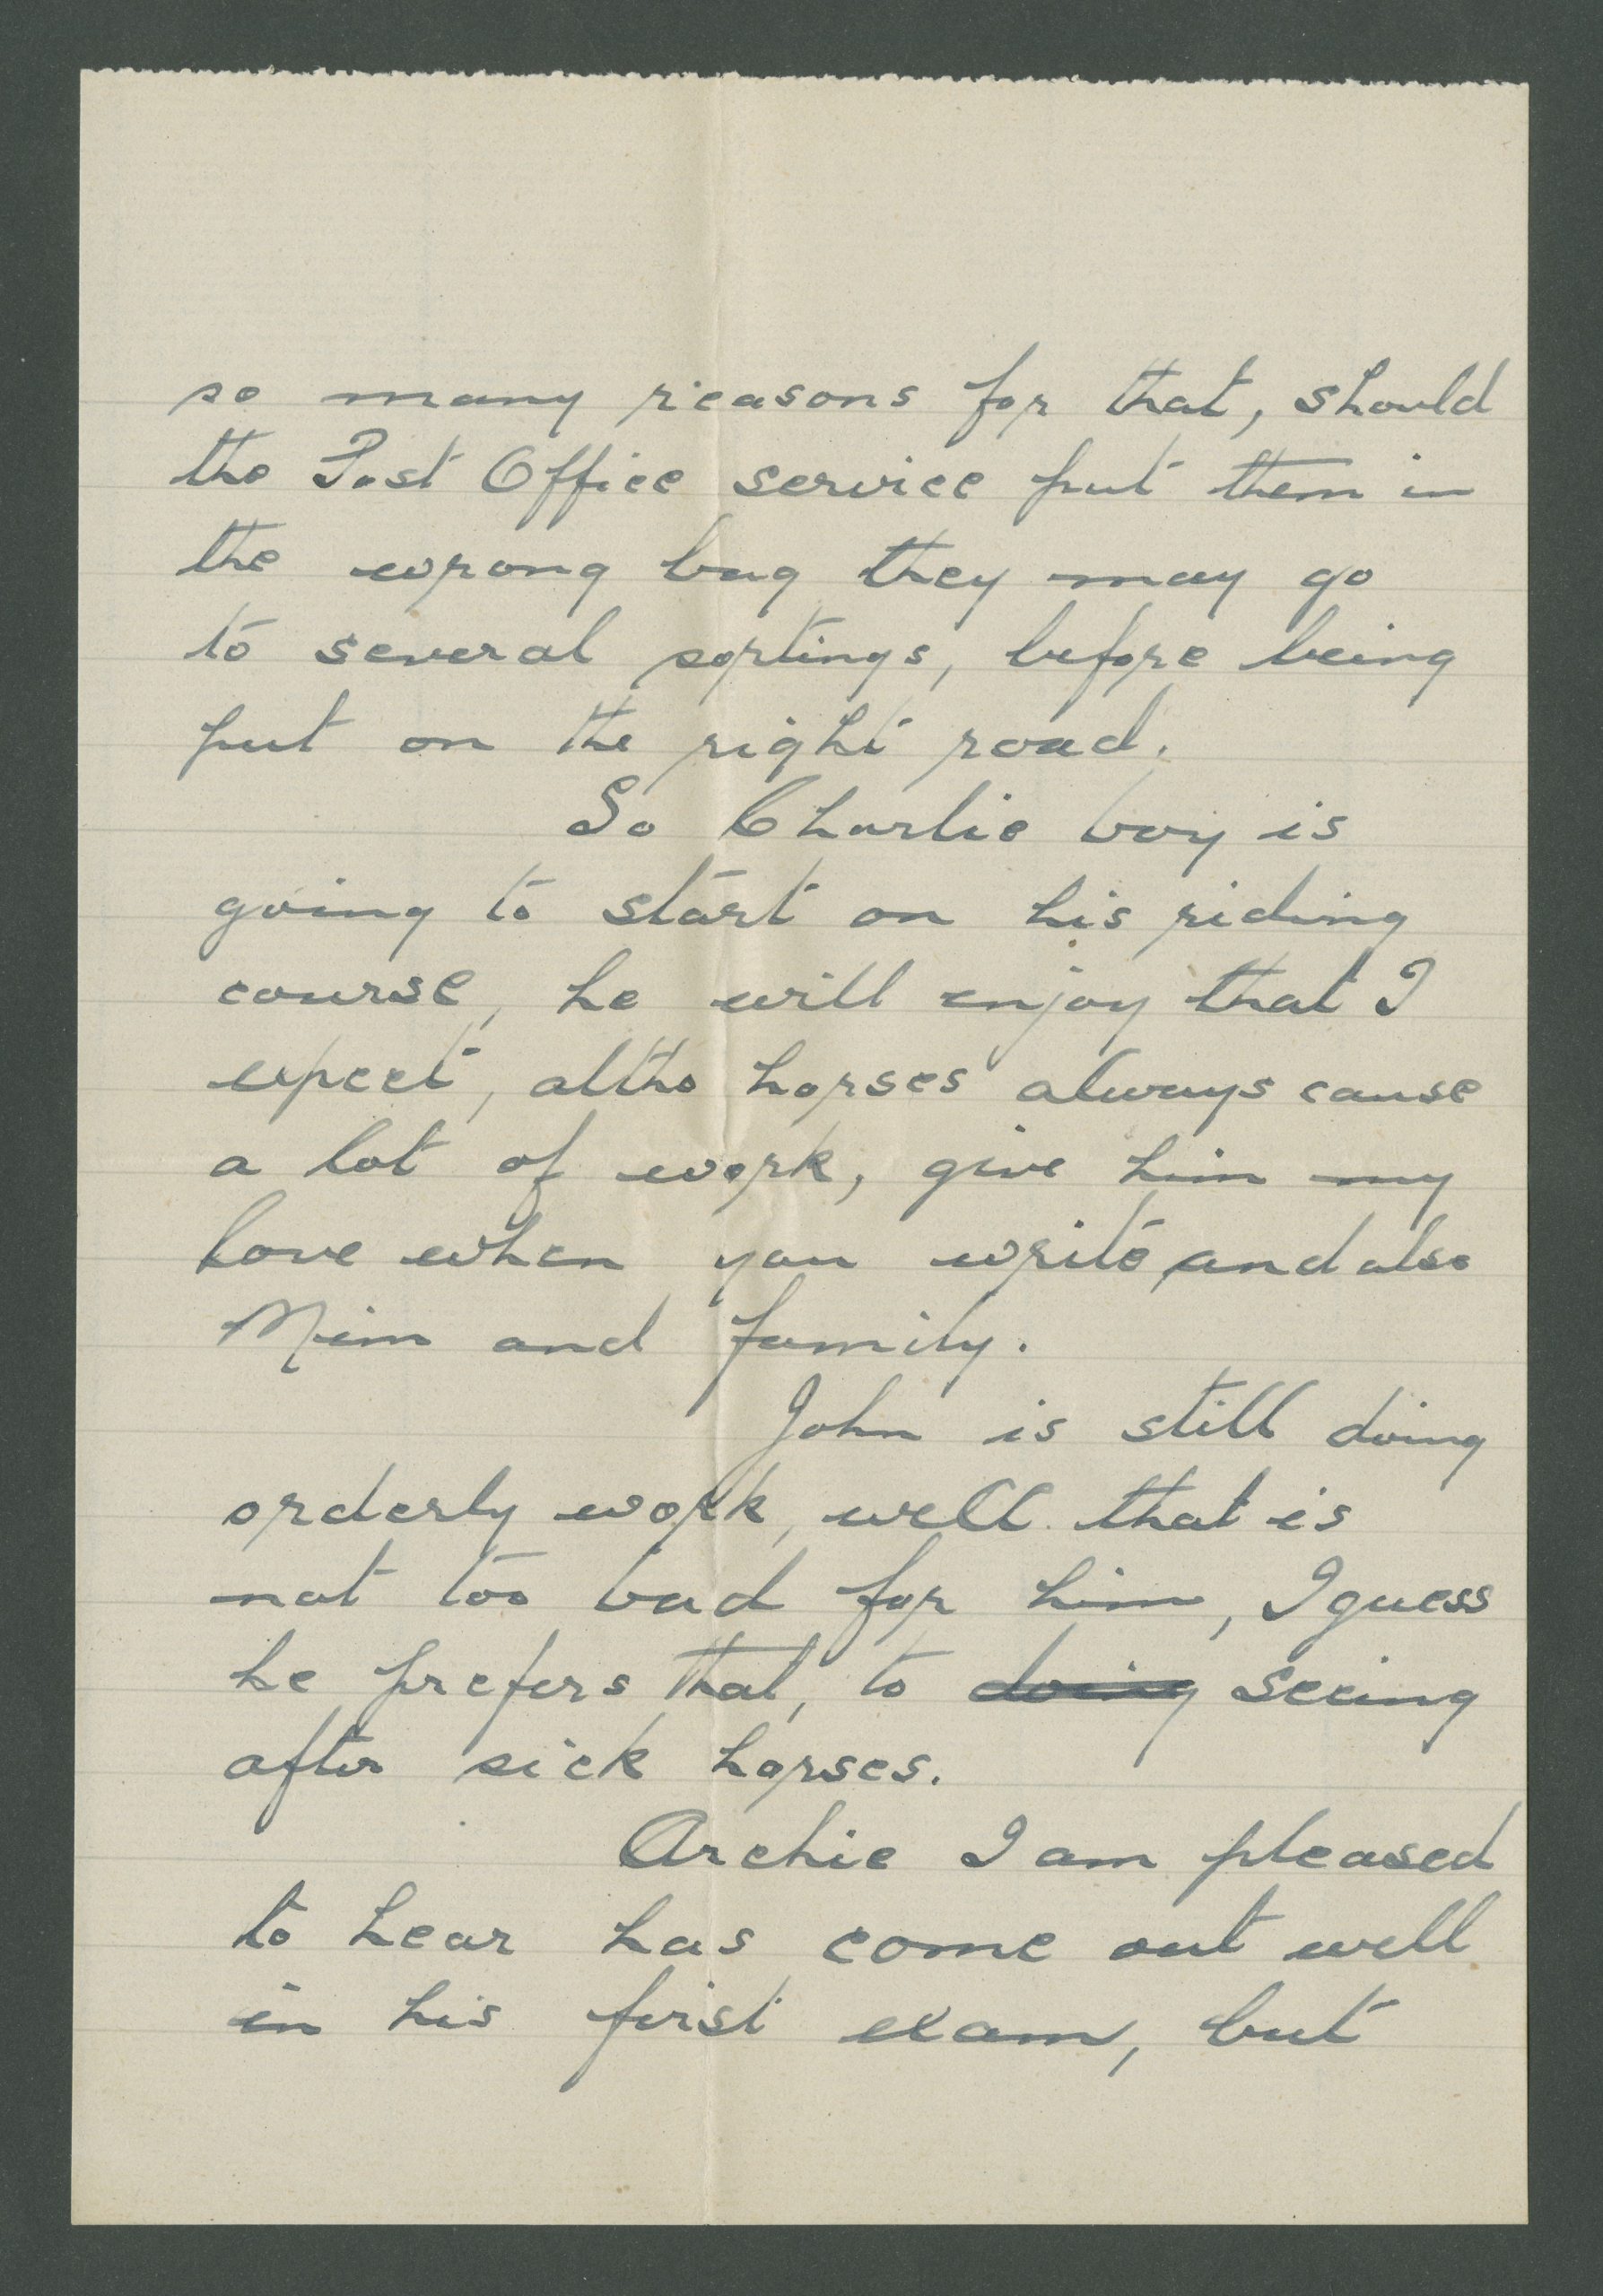 so many reasons for that, should
the Post Office service put them in
the wrong bag they may go
to several sortings, before being
put on the right road.
So Charlie boy is
going to start on his riding
course, he will enjoy that I
expect, altho horses always cause
a lot of work, give him my
love when you write, and also
Mim and family.
John is still doing
orderly work, well that is
not too bad for him, I guess
he prefers that, to doing seeing
after sick horses.
Archie I am pleased
to hear has come out well
in his first exam, but